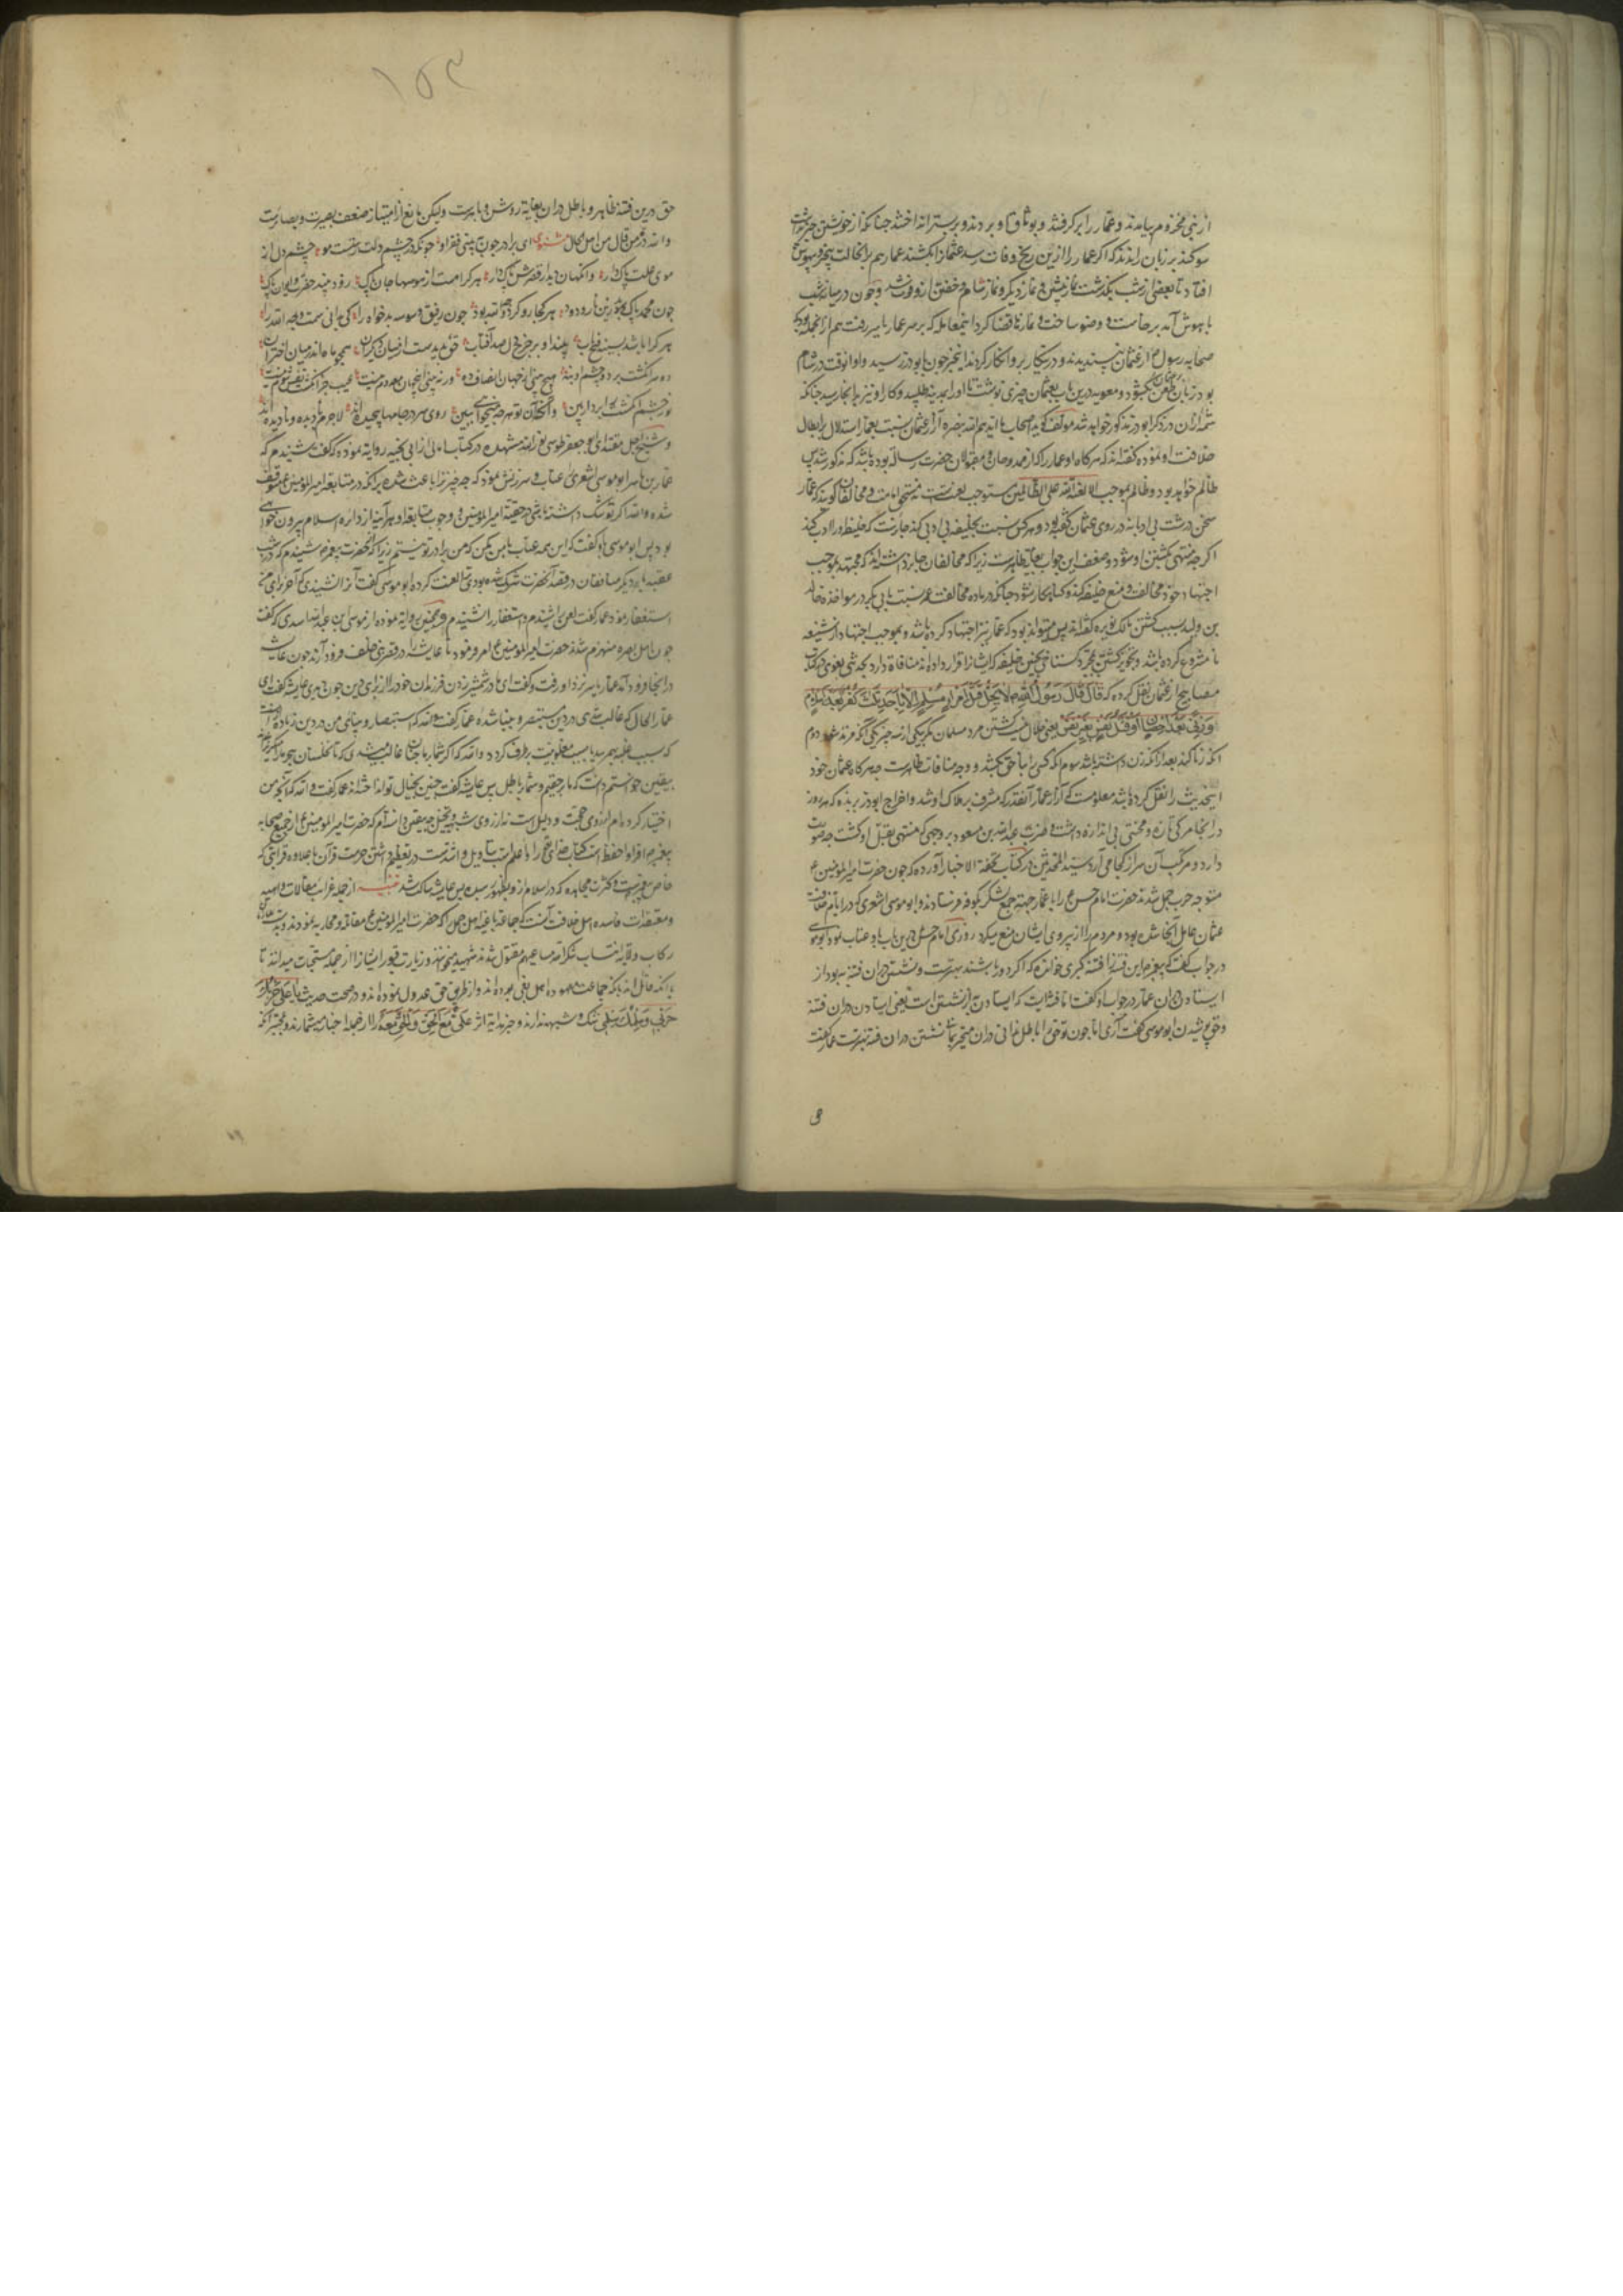 از بنی مخزوم بیامدند و عمار را برگرفتند و بوثاق او بردند و بر بستر انداختند چنانکه از خویشتن خبر نداشت
سوگند بر زبان راندند که اگر عمار را ازین رنج وفات رسد عثمان را بکشند عمار هم بران حالت بیخبر و بیهوش
افتاد تا بعضی از شب بگذشت نماز پیشین و نماز دیگر و نماز شام و خفتن ازو فوت شد و چون در میانه شب
باهوش آمد برخاست و وضو ساخت و نمازها قضا کرد این معامله که بر سر عمار یاسر رفت هم از انجمله بود که
صحابه رسول م از عثمان نپسندیدند و درین کار برو انکار کردند این خبر چون بابوذر رسید و او انوقت در شام
بود زبان طعن بگشود و معویه درین باب بعثمان چیزی نوشت تا او را بمدینه طلبید و کار او نیز بدانجا رسید چنانکه
شمه ازان در ذکر ابوذر مذکور خواهد شد مولف گوید اصحاب ما ایدهم الله بنصره آزار عثمان نسبت بعمار استدلال بر ابطال
خلافت او نموده گفته اند که هرگاه او عمار را که از ممدوحان و مقبولان حضرت رسالت بوده باشد که مذکور شد پس
ظالم خواهد بود و ظالم بموجب الا لعنة الله علی الظالمین مستوجب لعنت است نه مستحق امامت و مخالفان گویند که عمار
سخن درشت بی ادبانه در روی عثمان گفته بود و هر کس نسبت بخلیفه بی ادبی کند جایز است که خلیفه او را ادب کند
اگرچه منتهی بکشتن او شود و ضعف این جواب بغایت ظاهرست زیرا که مخالفان جایز داشته اند که مجتهد بموجب
اجتهاد خود مخالفت و منع خلیفه کند و گناهکار نشود چنانکه در ماده مخالفت عمر نسبت بابی بکر در مواخذه خالد
بن ولید بسبب کشتن مالک نویره گفته اند پس میتواند بود که عمار نیز اجتهاد کرده باشد و بموجب اجتهاد از شنیعه
نامشروع کرده باشد و تجویز کشتن بمجرد گستاخی بچنین خلیفه که ایشانرا قرار داده اند منافاة دارد بحدیثی که بغوی در کتاب
مصابیح از عثمان نقل کرده که قال قال رسول الله صلعم لا یحل قتل امرء مسلم الا باحدی ثلاث کفر بعد اسلام
و زنی بعد احصان او قتل نفس بغیر نفس یعنی حلال نیست کشتن مرد مسلمان مگر بیکی از سه چیز یکی آنکه مرتد شود دوم
آنکه زنا کند بعد از آنکه زن داشته باشد سوم آنکه کسی را بناحق بکشد و وجه منافات ظاهرست چه هرگاه عثمان خود
این حدیث را نقل کرده باشد معلومست که آزار عمار آنقدر که مشرف بر هلاک او شد و اخراج ابوذر بربذه که هر روز
در انجا مرگی تازه و محنتی بی اندازه داشت و ضرب عبدالله بن مسعود بر وجهی که منتهی بقتل او گشت چه صورت
دارد و مرتکب آن سر از کجا می آرد سید المحدثین در کتاب تحفة الاحبا آورده که چون حضرت امیرالمومنین ع
متوجه حرب جمل شدند حضرت امام حسن ع را با عمار جهته جمع لشکر بکوفه فرستادند و ابوموسی اشعری که در ایام خلافت
عثمان عامل آنجا شده بود و مردم را از پیروی ایشان منع میکرد روزی امام حسن ع درین باب با او عتاب نمود ابوموسی
در جواب گفت که پیغمبر این فتنه را فتنه کبری خوانده که اگر دور باشند بهترست و نشستن دران فتنه به بود از
ایستادن دران عمار در جواب او گفت تا فتنه ایست که ایستادن به از نشستن است یعنی ایستادن دران فتنه
وحق پوشیدن ابوموسی گفت آری اما چون تو حق را با باطل ندانی دران متحیر بمانی نشستن دران فتنه بهترست عمار گفت
و
۱۵۹
حق درین فتنه ظاهر و باطل دران بغایة روشن و باهرست ولیکن مانع از امتیاز ضعف بصیرت و بصارتست
والله در من قال من اهل الحال مثنوی ای برادر چون ببینی قصر او چونکه در چشم دلت رستست مو چشم دل از
موی علت پاک آر وانگهان دیدار قصرش چشم دار هر کرا هست از هوسها جان پاک زود بیند حضرت و ایوان پاک
چون محمد پاک شد زین نار و دود هر کجا رو کرد وجه الله بود چون رفیق وسوسه بدخواه را کی بدانی ثم وجه الله را
هر کرا باشد بسینه فتح باب بیند او بر چرخ دل صد آفتاب حق پدیدست از میان دیگران همچو ماه اندر میان اختران
دو سر انگشت بر دو چشم نه هیچ بینی از جهان انصاف ده ور نه بینی این جهان معدوم نیست عیب جز انگشت نفس شوم نیست
تو ز چشم انگشت را بردار هین وانگهان تو هر چه میخواهی ببین روی و سر در جامها پیچیده اند لاجرم با دیده و نادیده اند
و شیخ اجل مقتدای ابو جعفر طوسی نور الله مشهده در کتاب امالی از ابی نجیه روایة نموده که گفت شنیدم که
عمار بن یاسر ابو موسی اشعری را عتاب و سرزنش نمود که چه چیز ترا باعث شده برانکه در متابعة امیرالمومنین ع متوقف
شده والله اگر تو شک داشته باشی در حقیة امیرالمومنین و وجوب متابعة او هر آینه از دایره اسلام بیرون خواهی
بود پس ابو موسی باو گفت که این همه عتاب با من مکن که من برادر تو نیستم زیرا که از حضرت پیغمبر شنیدم که در شب
عقبه با دیگر منافقان در قصد آنحضرت شریک شده بودی ترا لعنت کرد ابوموسی گفت آخر نشنیدی که آخر برای من
استغفار نمود عمار گفت لعن را شنیدم و استغفار را نشنیدم و همچنین روایة نموده از موسی بن عبدالله اسدی که گفت
چون اهل بصره منهزم شدند حضرت امیرالمومنین ع امر فرمود تا عایشه را در قصر بنی خلف فرود آرند چون عایشه
در انجا فرود آمد عمار یاسر نزد او رفت و گفت ای مادر شمشیر زدن فرزندان خود را از برای دین چون دیدی عایشه گفت ای
عمار الحال که غالب شدی در دین مستبصر و بینا شده عمار گفت والله که استبصار و بینائی من در دین زیاده از انست
که بسبب غلبه بهم رسد یا بسبب مغلوبیت برطرف گردد والله که اگر شما بر ما چنان غالب میشدید که تا نخلستان هجر ما را میگریزاندید
بیقین خواستم دانست که ما بر حقیم و شما بر باطل پس عایشه گفت چنین بخیال تو انداخته اند عمار گفت والله که آنچه من
اختیار کرده ام از روی حجت و دلیل است نه از روی شبهه و تخیل چه یقین دانسته ام که حضرت امیرالمومنین ع از جمیع صحابه
پیغمبر اقرا و احفظ است کتاب خدای تعالی را و اعلم است بتاویل و اشدست در تعظیم داشتن حرمت قرآن با علاوه قرابتی که
خاص پیغمبرست و کثرت مجاهده که در اسلام ازو بظهور رسید پس عایشه ساکت شد تنبیه از جمله غرایب مقالات واهیه
و معتقدات فاسده اهل خلافت آنست که جماعة باغیه اهل جمل را که حضرت امیرالمومنین ع مقاتله و محاربه نمودند و بدست ملازمان
رکاب ولایة انتساب شکر الله مساعیهم مقتول شدند شهید میخوانند و زیارت قبور ایشانرا از جمله مستحبات میدانند تا
با آنکه قائل اند بانکه جماعت معهوده اهل بغی بوده اند و از طریق حق عدول نموده اند و در صحت حدیث یا علی حربک
حربی و سلمک سلمی شک و شبهه ندارند و خبر هدایة اثر علی مع الحق و الحق معه را از جمله اخبار صحیحه شمارند و مخبر آنکه